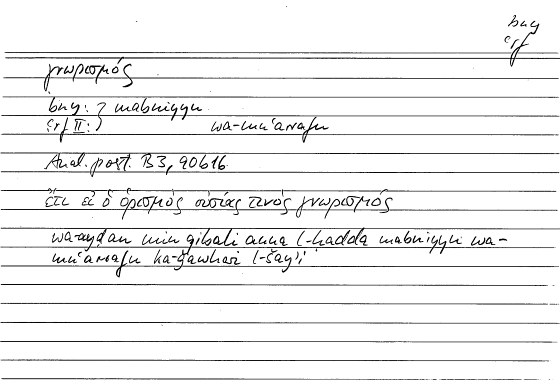 bny
ʿrf
γνωρισμός
bny: } mabniyyu
ʿrf II: } wa-muʿarrafu
Anal. post. B3, 90b16
ἔτι εἰ ὁ ὁρισμός οὐσίας τινός γνωρισμός
wa-ayḍan min qibali anna l-ḥadda mabniyyu wa-
muʿarrafu ka-ǧawhari l-šayʾi